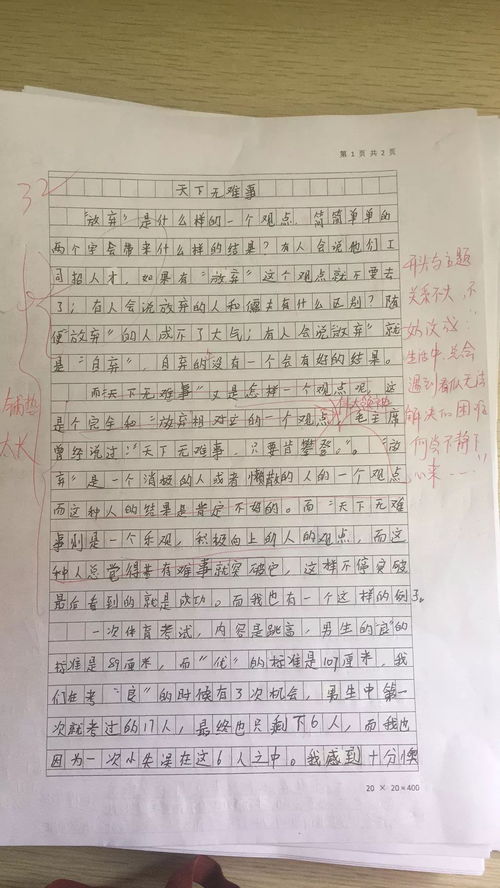 第 1 页 共 2 页
32
天下无难事
“放弃”是什么样的一个观点，简简单单的
两个字会带来什么样的结果？有人会说他们工
司招人才，如果有“放弃”这个观点就不要去
了；有人会说放弃的人和懦夫有什么区别？随
便“放弃”的人成不了大气；有人会说“放弃”就
是“自弃”，自弃的没有一个会有好的结果。
而“天下无难事”又是怎样一个观点呢，这
是个完全和“放弃”相对立的一个观点，毛主席
曾经说过：“天下无难事，只要肯攀登。”。“放
弃”是一个消极的人或者懒散的人的一个观点
而这种人的结果是肯定不好的。而“天下无难
事则是一个乐观，积极向上的人的观点，而这
种人总觉得未有难事就突破它，这样不停突破
最后看到的就是成功。而我也有一个这样的例子。
一次体育考试，内容是跳高，男生的“良”的
标准是89厘米，而“优”的标准是107厘米，我
们在考“良”的时候有3次机会，男生中第一
次就考过的17人，最终也只剩下6人，而我也
因为一次小失误在这6人之中。我感到十分懊
20 × 20=400
铺垫
太长
伟人领袖
开头与主题
关系不大，不
妨改成：
生活中，总会
遇到看似无法
解决的困难
何不静下
心来……